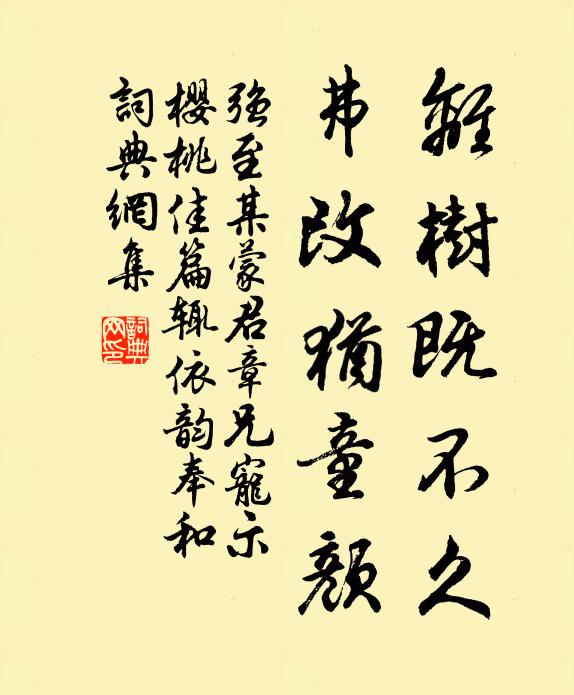 離樹既不久
弗改猶童顏
強至某蒙君章兄寵示
櫻桃佳篇輒依韵奉和
詞典網集
詞典
网印